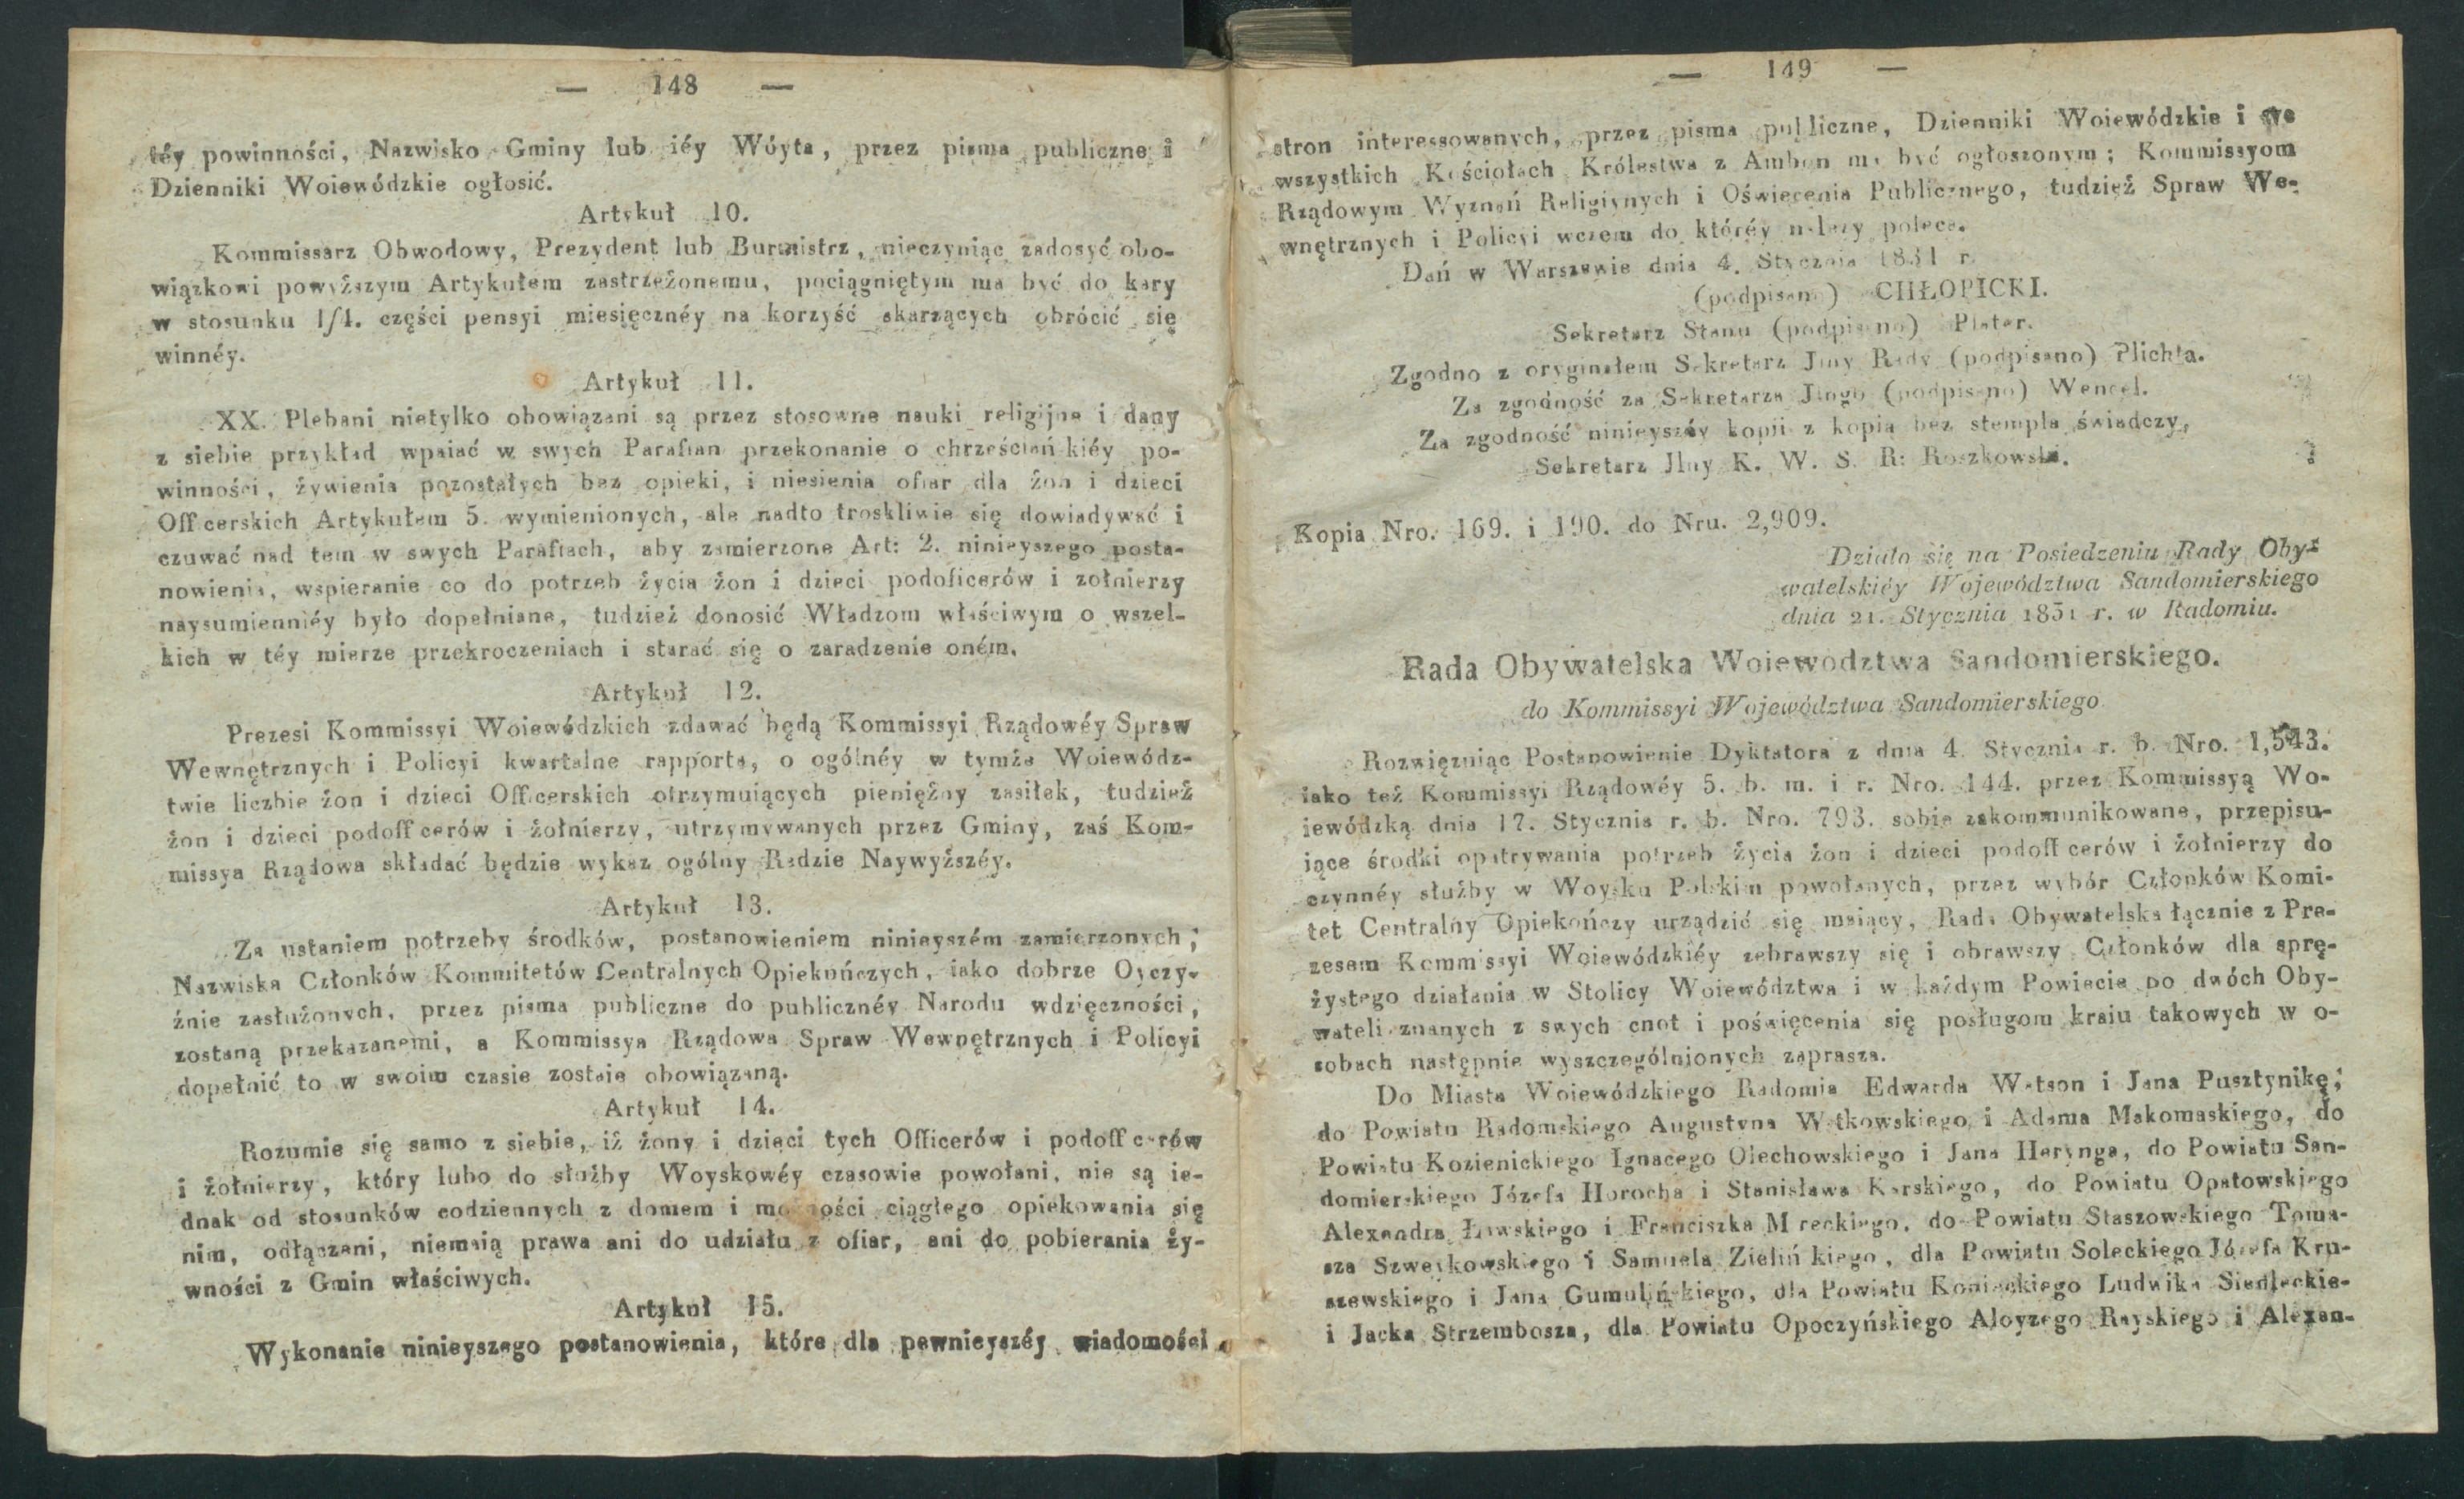 — 148 —
téy powinności, Nazwisko Gminy lub iéy Wóyta, przez pisma publiczne i
Dzienniki Woiewódzkie ogłosić.
Artykuł 10.
Kommissarz Obwodowy, Prezydent lub Burmistrz, nieczyniąc zadosyć obo-
wiązkowi powyższym Artykułem zastrzeżonemu, pociągniętym ma być do kary
w stosunku 1/4. części pensyi miesięcznéy na korzyść skarzących obrócić się
winnéy.
Artykuł 11.
XX. Plebani nietylko obowiązani są przez stosowne nauki religijne i dany
z siebie przykład wpaiać w swych Parafian przekonanie o chrześciańskiéy po-
winności, żywienia pozostałych bez opieki, i niesienia ofiar dla żon i dzieci
Officerskich Artykułem 5. wymienionych, ale nadto troskliwie się dowiadywać i
czuwać nad tem w swych Parafiach, aby zamierzone Art: 2. ninieyszego posta-
nowienia, wspieranie co do potrzeb życia żon i dzieci podoficerów i zołnierzy
naysumienniéy było dopełniane, tudzież donosić Władzom właściwym o wszel-
kich w téy mierze przekroczeniach i starać się o zaradzenie oném.
Artykuł 12.
Prezesi Kommissyi Woiewódzkich zdawać będą Kommissyi Rządowéy Spraw
Wewnętrznych i Policyi kwartalne rapporta, o ogólnéy w tymże Woiewódz-
twie liczbie żon i dzieci Officerskich otrzymuiących pieniężny zasiłek, tudzież
żon i dzieci podofficerów i żołnierzy, utrzymywanych przez Gminy, zaś Kom-
missya Rządowa składać będzie wykaz ogólny Radzie Naywyższéy.
Artykuł 13.
Za ustaniem potrzeby środków, postanowieniem ninieyszém zamierzonych;
Nazwiska Członków Kommitetów Centralnych Opiekuńczych, iako dobrze Oyczy-
źnie zasłużonych, przez pisma publiczne do publicznéy Narodu wdzięczności,
zostaną przekazanemi, a Kommissya Rządowa Spraw Wewnętrznych i Policyi
dopełnić to w swoim czasie zostaie obowiązaną.
Artykuł 14.
Rozumie się samo z siebie, iż żony i dzieci tych Officerów i podofficerów
i żołnierzy, który lubo do służby Woyskowéy czasowie powołani, nie są ie-
dnak od stosunków codziennych z domem i możności ciągłego opiekowania się
nim, odłączeni, niemaią prawa ani do udziału z ofiar, ani do pobierania ży-
wności z Gmin właściwych.
Artykuł 15.
Wykonanie ninieyszego postanowienia, które dla pewnieyszéy wiadomości
— 149 —
stron interessowanych, przez pisma publiczne, Dzienniki Woiewódzkie i we
wszystkich Kościołach Królestwa z Ambon ma być ogłoszonym; Kommissyom
Rządowym Wyznań Religiynych i Oświecenia Publicznego, tudzież Spraw We-
wnętrznych i Policyi wczem do któréy należy poleca.
Dań w Warszawie dnia 4. Stycznia 1831 r.
(podpisano) CHŁOPICKI.
Sekretarz Stanu (podpisano) Plater.
Zgodno z oryginałem Sekretarz Jlny Rady (podpisano) Plichta.
Za zgodność za Sekretarza Jlngo (podpisano) Wencel.
Za zgodność ninieyszéy kopii z kopią bez stempla świadczy,
Sekretarz Jlny K. W. S. R: Roszkowski.
Kopia Nro. 169. i 190. do Nru. 2,909.
Działo się na Posiedzeniu Rady Oby-
watelskiéy Wojewódzlwa Sandomierskiego
dnia 21. Stycznia 1831 r. w Radomiu.
Rada Obywatelska Woiewodztwa Sandomierskiego.
do Kommissyi Wojewódzlwa Sandomierskiego
Rozwięzuiąc Postanowienie Dyktatora z dnia 4. Stycznia r. b. Nro. 1,543.
iako też Kommissyi Rządowéy 5. b. m. i r. Nro. 144. przez Kommissyą Wo-
iewódzką dnia 17. Stycznia r. b. Nro. 793. sobie zakommunikowane, przepisu-
iące środki opatrywania potrzeb życia żon i dzieci podofficerów i żołnierzy do
czynnéy służby w Woysku Polskim powołanych, przez wybór Członków Komi-
tet Centralny Opiekończy urządzić się maiący, Rada Obywatelska łącznie z Pre-
zesem Kommissyi Woiewódzkiéy zebrawszy się i obrawszy Członków dla sprę-
żystego działania w Stolicy Woiewództwa i w każdym Powiecie po dwóch Oby-
wateli znanych z swych cnot i poświęcenia się posługom kraiu takowych w o-
sobach następnie wyszczególnionych zaprasza.
Do Miasta Woiewódzkiego Radomia Edwarda Watson i Jana Pusztynikę;
do Powiatu Radomskiego Augustyna Witkowskiego i Adama Makomaskiego, do
Powiatu Kozienickiego Ignacego Olechowskiego i Jana Herynga, do Powiatu San-
domierskiego Józefa Horocha i Stanisława Karskiego, do Powiatu Opatowskiego
Alexandra Ławskiego i Franciszka Mreckiego, do Powiatu Staszowskiego Toma-
sza Szweykowskiego i Samuela Zielińskiego, dla Powiatu Soleckiego Józefa Kru-
szewskiego i Jana Gumulińskiego, dla Powiatu Konieckiego Ludwika Siedleckie-
i Jacka Strzembosza, dla Powiatu Opoczyńskiego Aloyzego Rayskiego i Alexan-